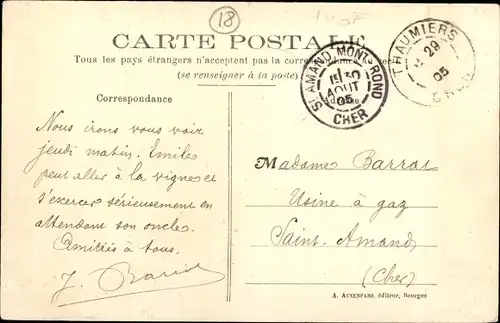 18
CARTE POSTALE
Tous les pays étrangers n'acceptent pas la correspondance au
(se renseigner à la poste)
ST AMAND MONT-ROND
15 30
AOUT
05
CHER
THAUMIERS
29
05
CHER
Correspondance
Nous irons vous voir
jeudi matin. Emile
peut aller à la vigne et
s'exercer sérieusement en
attendant son oncle.
Amitiés à tous.
J.
Madame Barrat
Usine à gaz
Saint-Amand
(Cher)
A. AUXENFANS, éditeur, Bourges